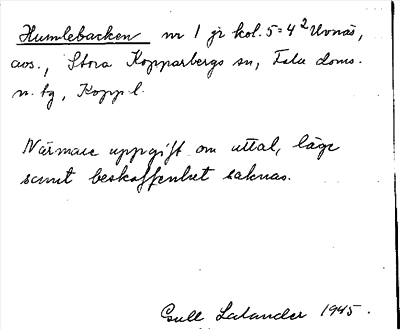 Humlebacken nr 1 på kol. 5=4² Uvnäs,
avs., Stora Kopparbergs sn, Falu doms.
n. tg, Kopp l.
Närmare uppgift om uttal, läge
samt beskaffenhet saknas.
Gull Lalander 1945.